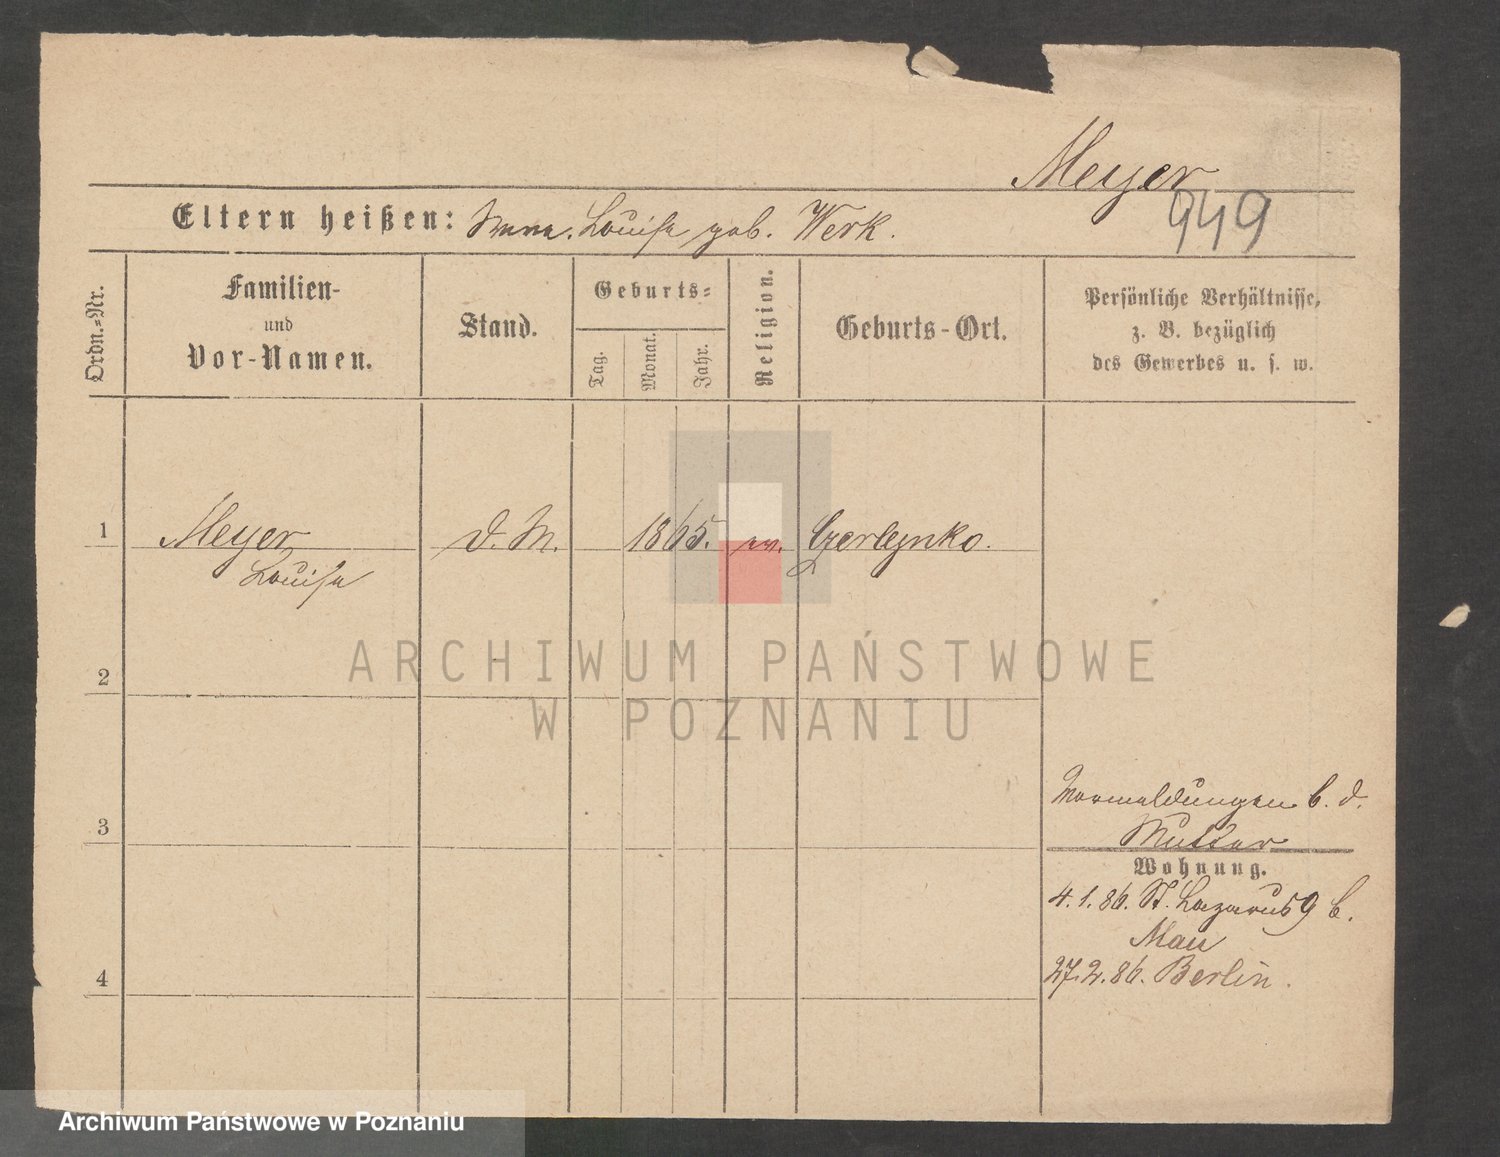 Meyer
949
Eltern heißen: Louise geb. Werk.
Ordn.=Nr.
Familien-
und
Vor-Namen.
Stand.
Geburts=
Tag.
Monat.
Jahr.
Religion.
Geburts-Ort.
Persönliche Verhältnisse,
z. B. bezüglich
des Gewerbes u. s. w.
1 Meyer D. M. 1865. ev. Czerleynko.
Louise
2
3
4
Vormeldungen b. d.
Mutter
Wohnung.
4.1.86. St. Lazarus 9 b.
Mau
27.2.86. Berlin.
ARCHIWUM PAŃSTWOWE
W POZNANIU
Archiwum Państwowe w Poznaniu